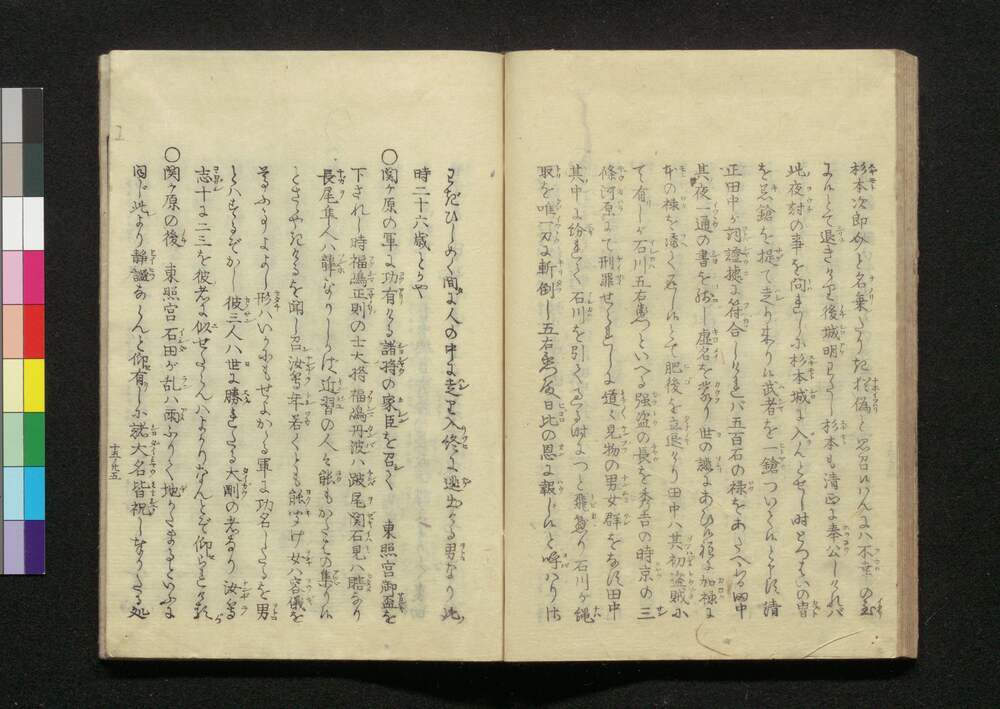 杉本次郎介と名乗たりけれ抂偽と思召けんは不幸の至
によんとて退きけり後城明わたし杉本も清正に奉公しけれバ
此夜討の事を問れしに杉本城に入んとせし時とつはいの冑
を著鎗を提て走り来りに武者を一鎗ついて候と申す清
正田中が詞證據に符合しけれバ五百石の禄をあたへらる田中
其夜一通の書を残し虚名を以て世の譏にあひ候に加様に
本の禄を潔く返し候とて肥後を立退けり田中ハ其初盗賊に
て有しが石川五右衛門といへる強盗の長を秀吉の時京の三
條河原にて刑罪せられしに道々見物の男女群をなす田中
其中に紛れて石川を引くる時につと飛懸り石川が縄
取を唯一刀に斬倒し五右衛門殿日比の恩に報じ候と呼ハりけ
るをひしめく間に人の中に走り入終に逃出たる男なり此
時二十六歳とかや
〇関ヶ原の軍に功有ける諸将の家臣を召て 東照宮御盃を
下されし時福嶋正則の士大将福嶋丹波ハ跛尾関石見ハ瞎なり
長尾隼人ハ聾なりしかば近習の人々能もかたはの集りけ
とささやきけるを聞し召汝等年若くとも能聞け女ハ容儀を
専にするよし形ハいかにもせよかゝる軍に功名したるを男
とハするぞかし彼三人ハ世に勝れたる大剛の者なり汝等
志十に二三を彼者に似せたらんハよかりなんとぞ仰られける
〇関ヶ原の後 東照宮石田が乱ハ雨ふりて地かたまるといふに
同じ此より静謐ならんと仰有しに諸大名皆祝し奉りたる処
十五ノ廿五